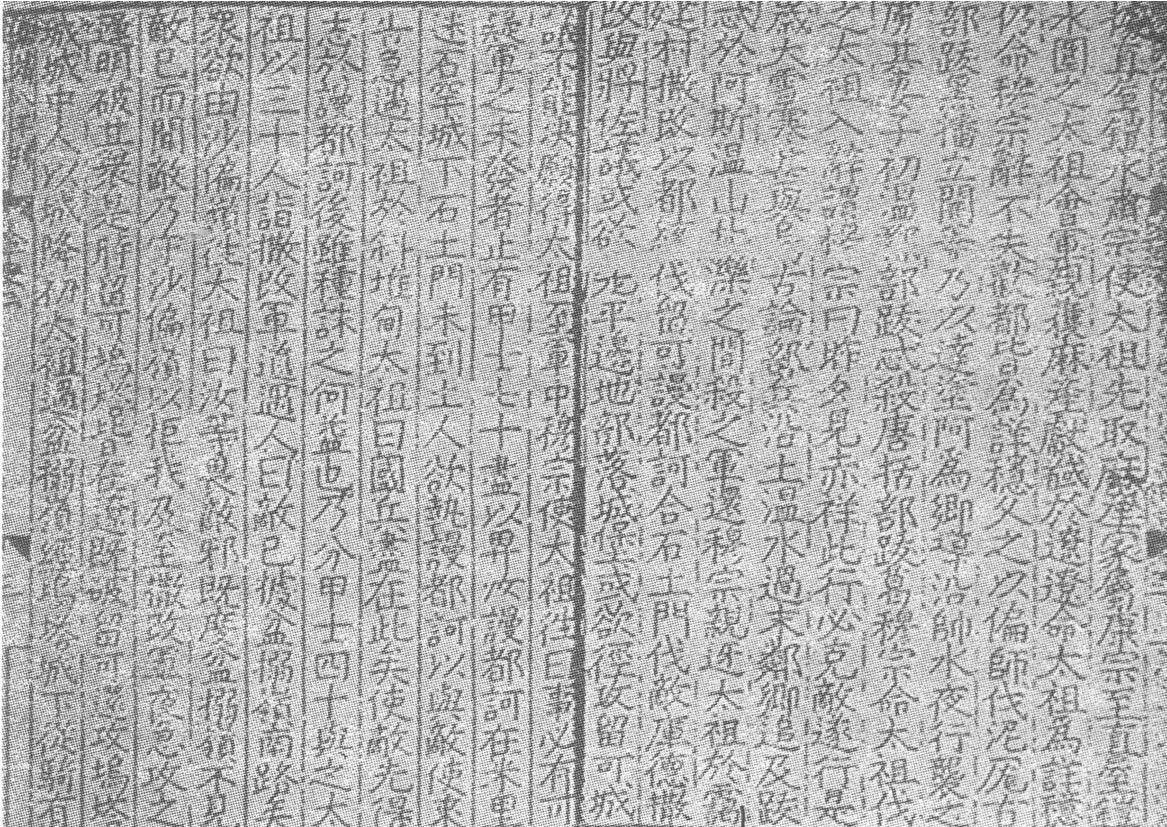 據直屋鎧水肅宗使太祖先取麻產家屬康宗至直屋鎧
水圍之太祖會軍親獲麻產獻馘於遼遼命太祖為詳穩
仍命穆宗辭不失歡都皆為詳穩久之以偏師伐泥厖古
部跋黑播立開等乃以達塗阿為鄉導沿帥水夜行襲之
鹵其妻子初溫都部跋忒殺唐括部跋葛穆宗命太祖伐
之太祖入辭謂穆宗曰昨夕見赤祥此行必克敵遂行是
歲大雪寒甚與烏古論部兵沿土溫水過末鄰鄉追及跋
忒於阿斯溫山北濼之間殺之軍還穆宗親迓太祖於靄
建村撒改以都統伐留可謾都訶合石土門伐敵庫德撒
改與將佐議或欲先平邊地部落城堡或欲徑攻留可城
議不能決願得太祖至軍中穆宗使太祖往曰事必有可
疑軍之未發者止有甲士七十盡以畀汝謾都訶在米里
迷石罕城下石土門未到土人欲執謾都訶以與敵使來
告急遇太祖於斜堆甸太祖曰國兵盡在此矣使敵先得
志於謾都訶後雖種誅之何益也乃分甲士四十與之太
祖以三十人詣撒改軍道遇人曰敵已據盆搦嶺南路矣
眾欲由沙偏嶺往太祖曰汝等畏敵邪既度盆搦嶺不見
敵已而聞敵乃守沙偏嶺以拒我及至撒改軍夜急攻之
遲明破其眾是時留可塢塔皆在遼既破留可還攻塢塔
城城中人以城降初太祖過盆搦嶺經塢塔城下從騎有